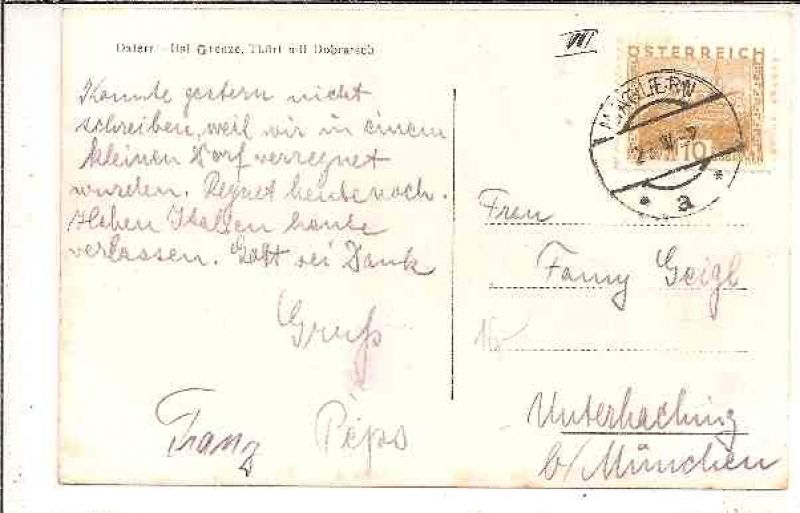 Österr.-Ital Grenze, Thörl mit Dobratsch
VII
Konnte gestern nicht
schreiben, weil wir in einem
kleinen Dorf verregnet
wurden. Regnet heute noch.
Haben Italien heute
verlassen. Gott sei Dank
Gruß
Franz Peps
ÖSTERREICH
10
GROSCHEN
a
Frau
Fanny Geigl
Unterhaching
b/München